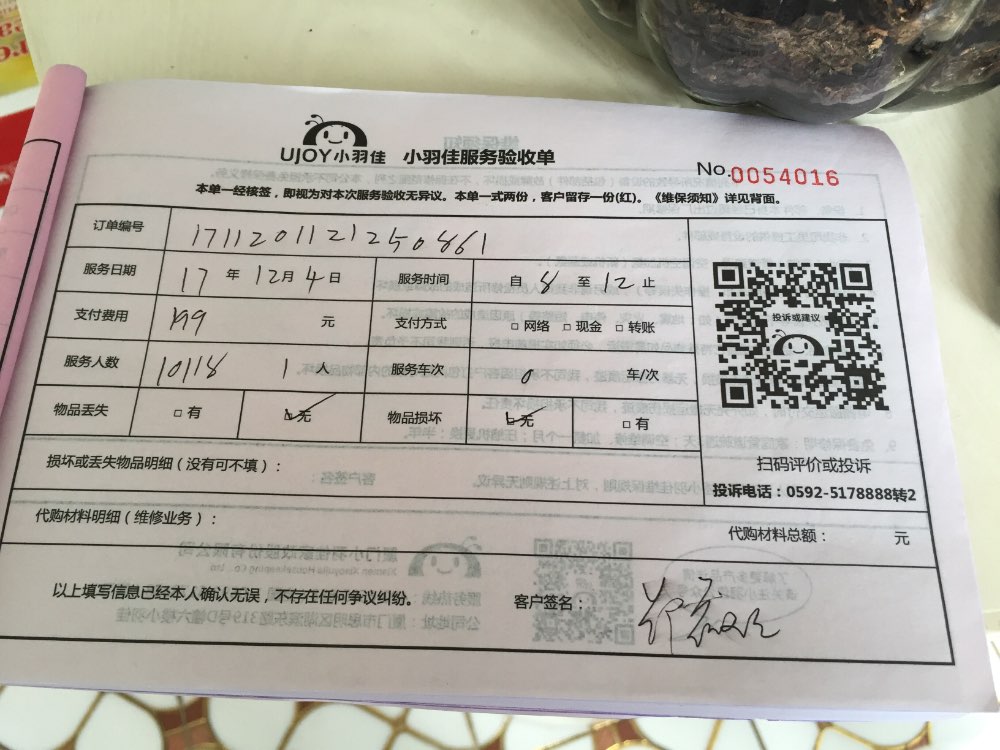 UJOY小羽佳 小羽佳服务验收单
No.0054016
本单一经核签，即视为对本次服务验收无异议。本单一式两份，客户留存一份(红)。《维保须知》详见背面。
订单编号 1711201121250861
服务日期 17 年 12 月 4 日 服务时间 自 8 至 12 止
支付费用 199 元 支付方式 □ 网络 □ 现金 □ 转账
服务人数 10118 1 人 服务车次 0 车/次
物品丢失 □ 有 ☑ 无 物品损坏 ☑ 无 □ 有
投诉或建议
扫码评价或投诉
投诉电话：0592-5178888转2
损坏或丢失物品明细（没有可不填）：
代购材料明细（维修业务）： 代购材料总额： 元
以上填写信息已经本人确认无误，不存在任何争议纠纷。 客户签名：